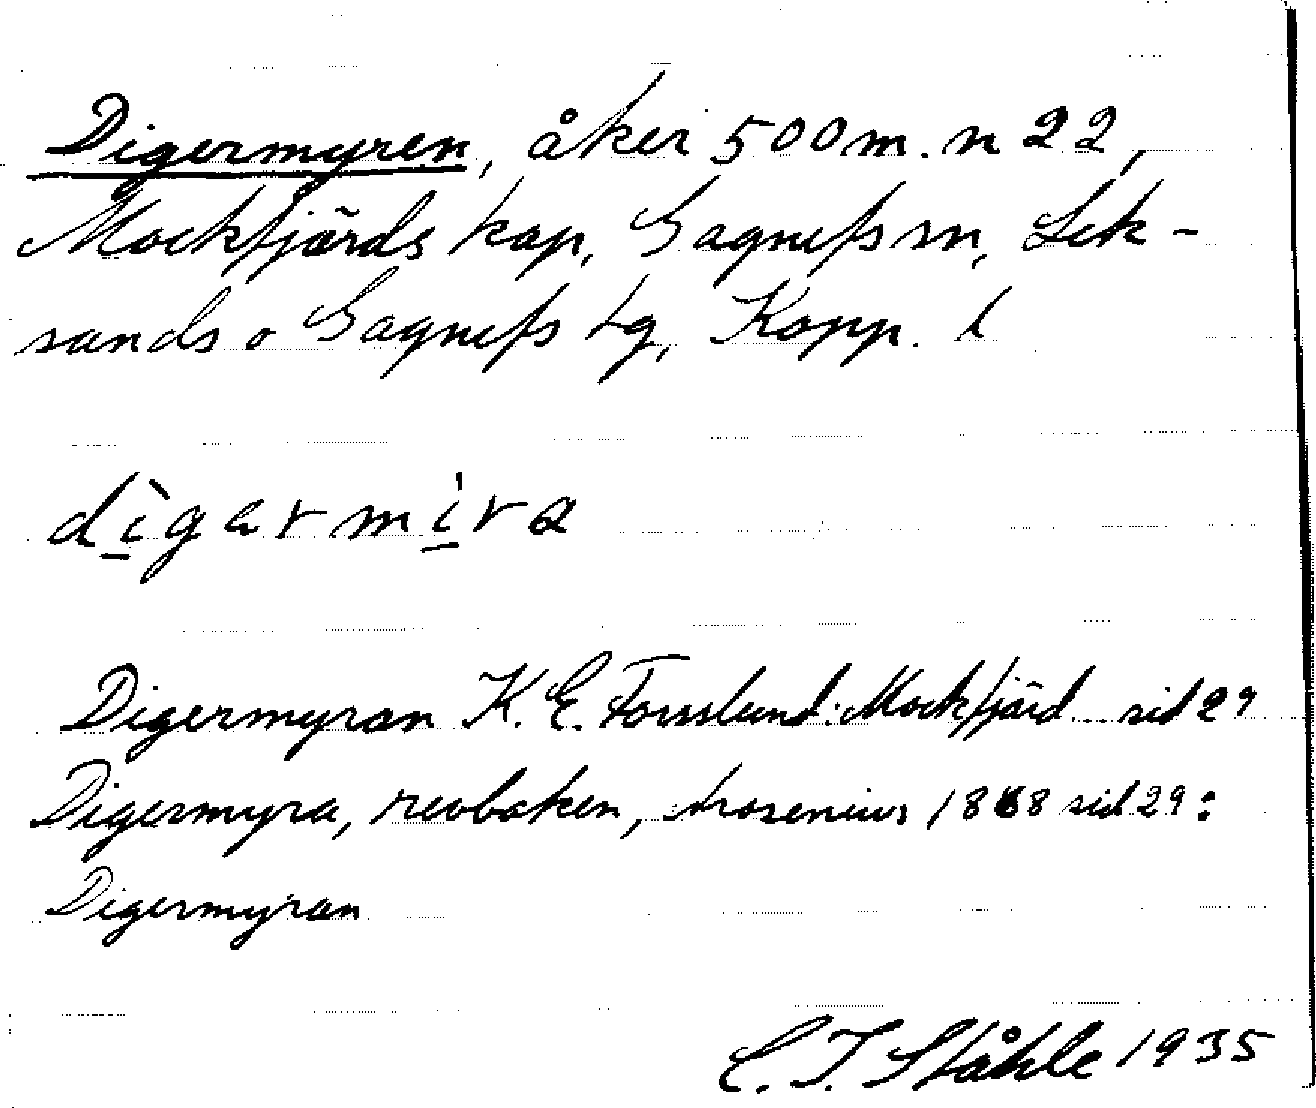 Digermyren, åker 500 m. n 22,
Mockfjärds kap, Gagnefs sn, Lek-
sands o Gagnefs tg, Kopp. l
dìgarmi̍ra
Digermyran K. E. Forsslund: Mockfjärd sid 29
Digermyra, revboken, Arosenius 1868 sid 29:
Digermyran
C. I. Ståhle 1935